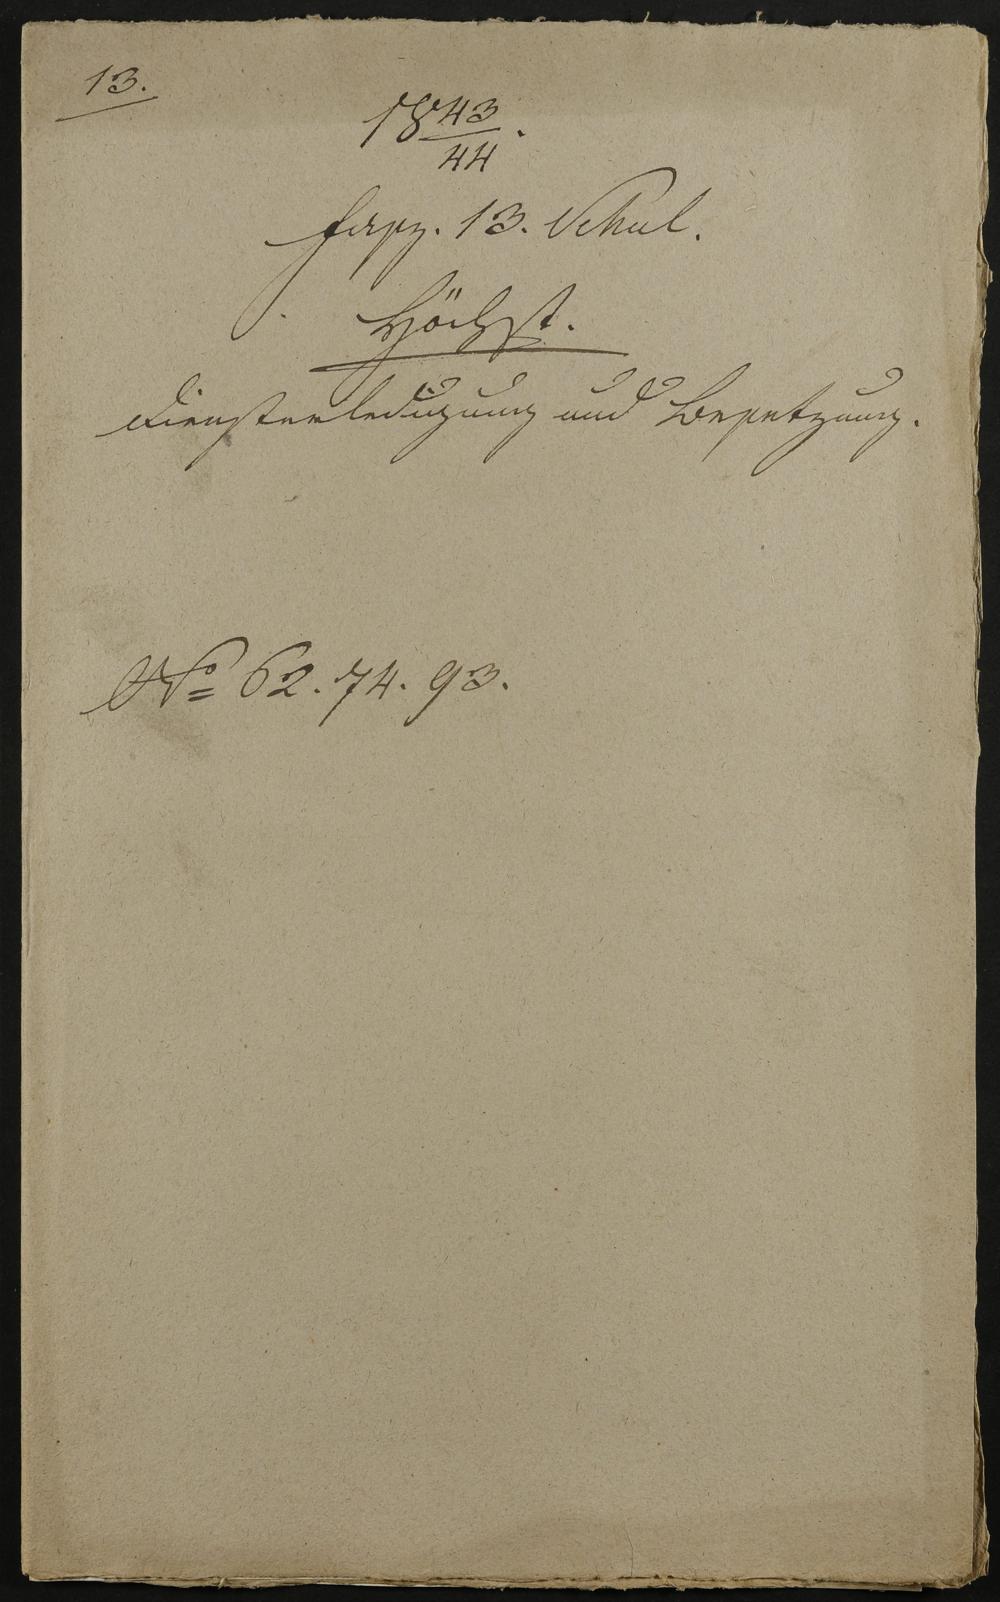 13.
18 43/44.
Fasz. 13. Schul.
Höchst.
Diensterledigung und Besetzung.
No 62. 74. 93.